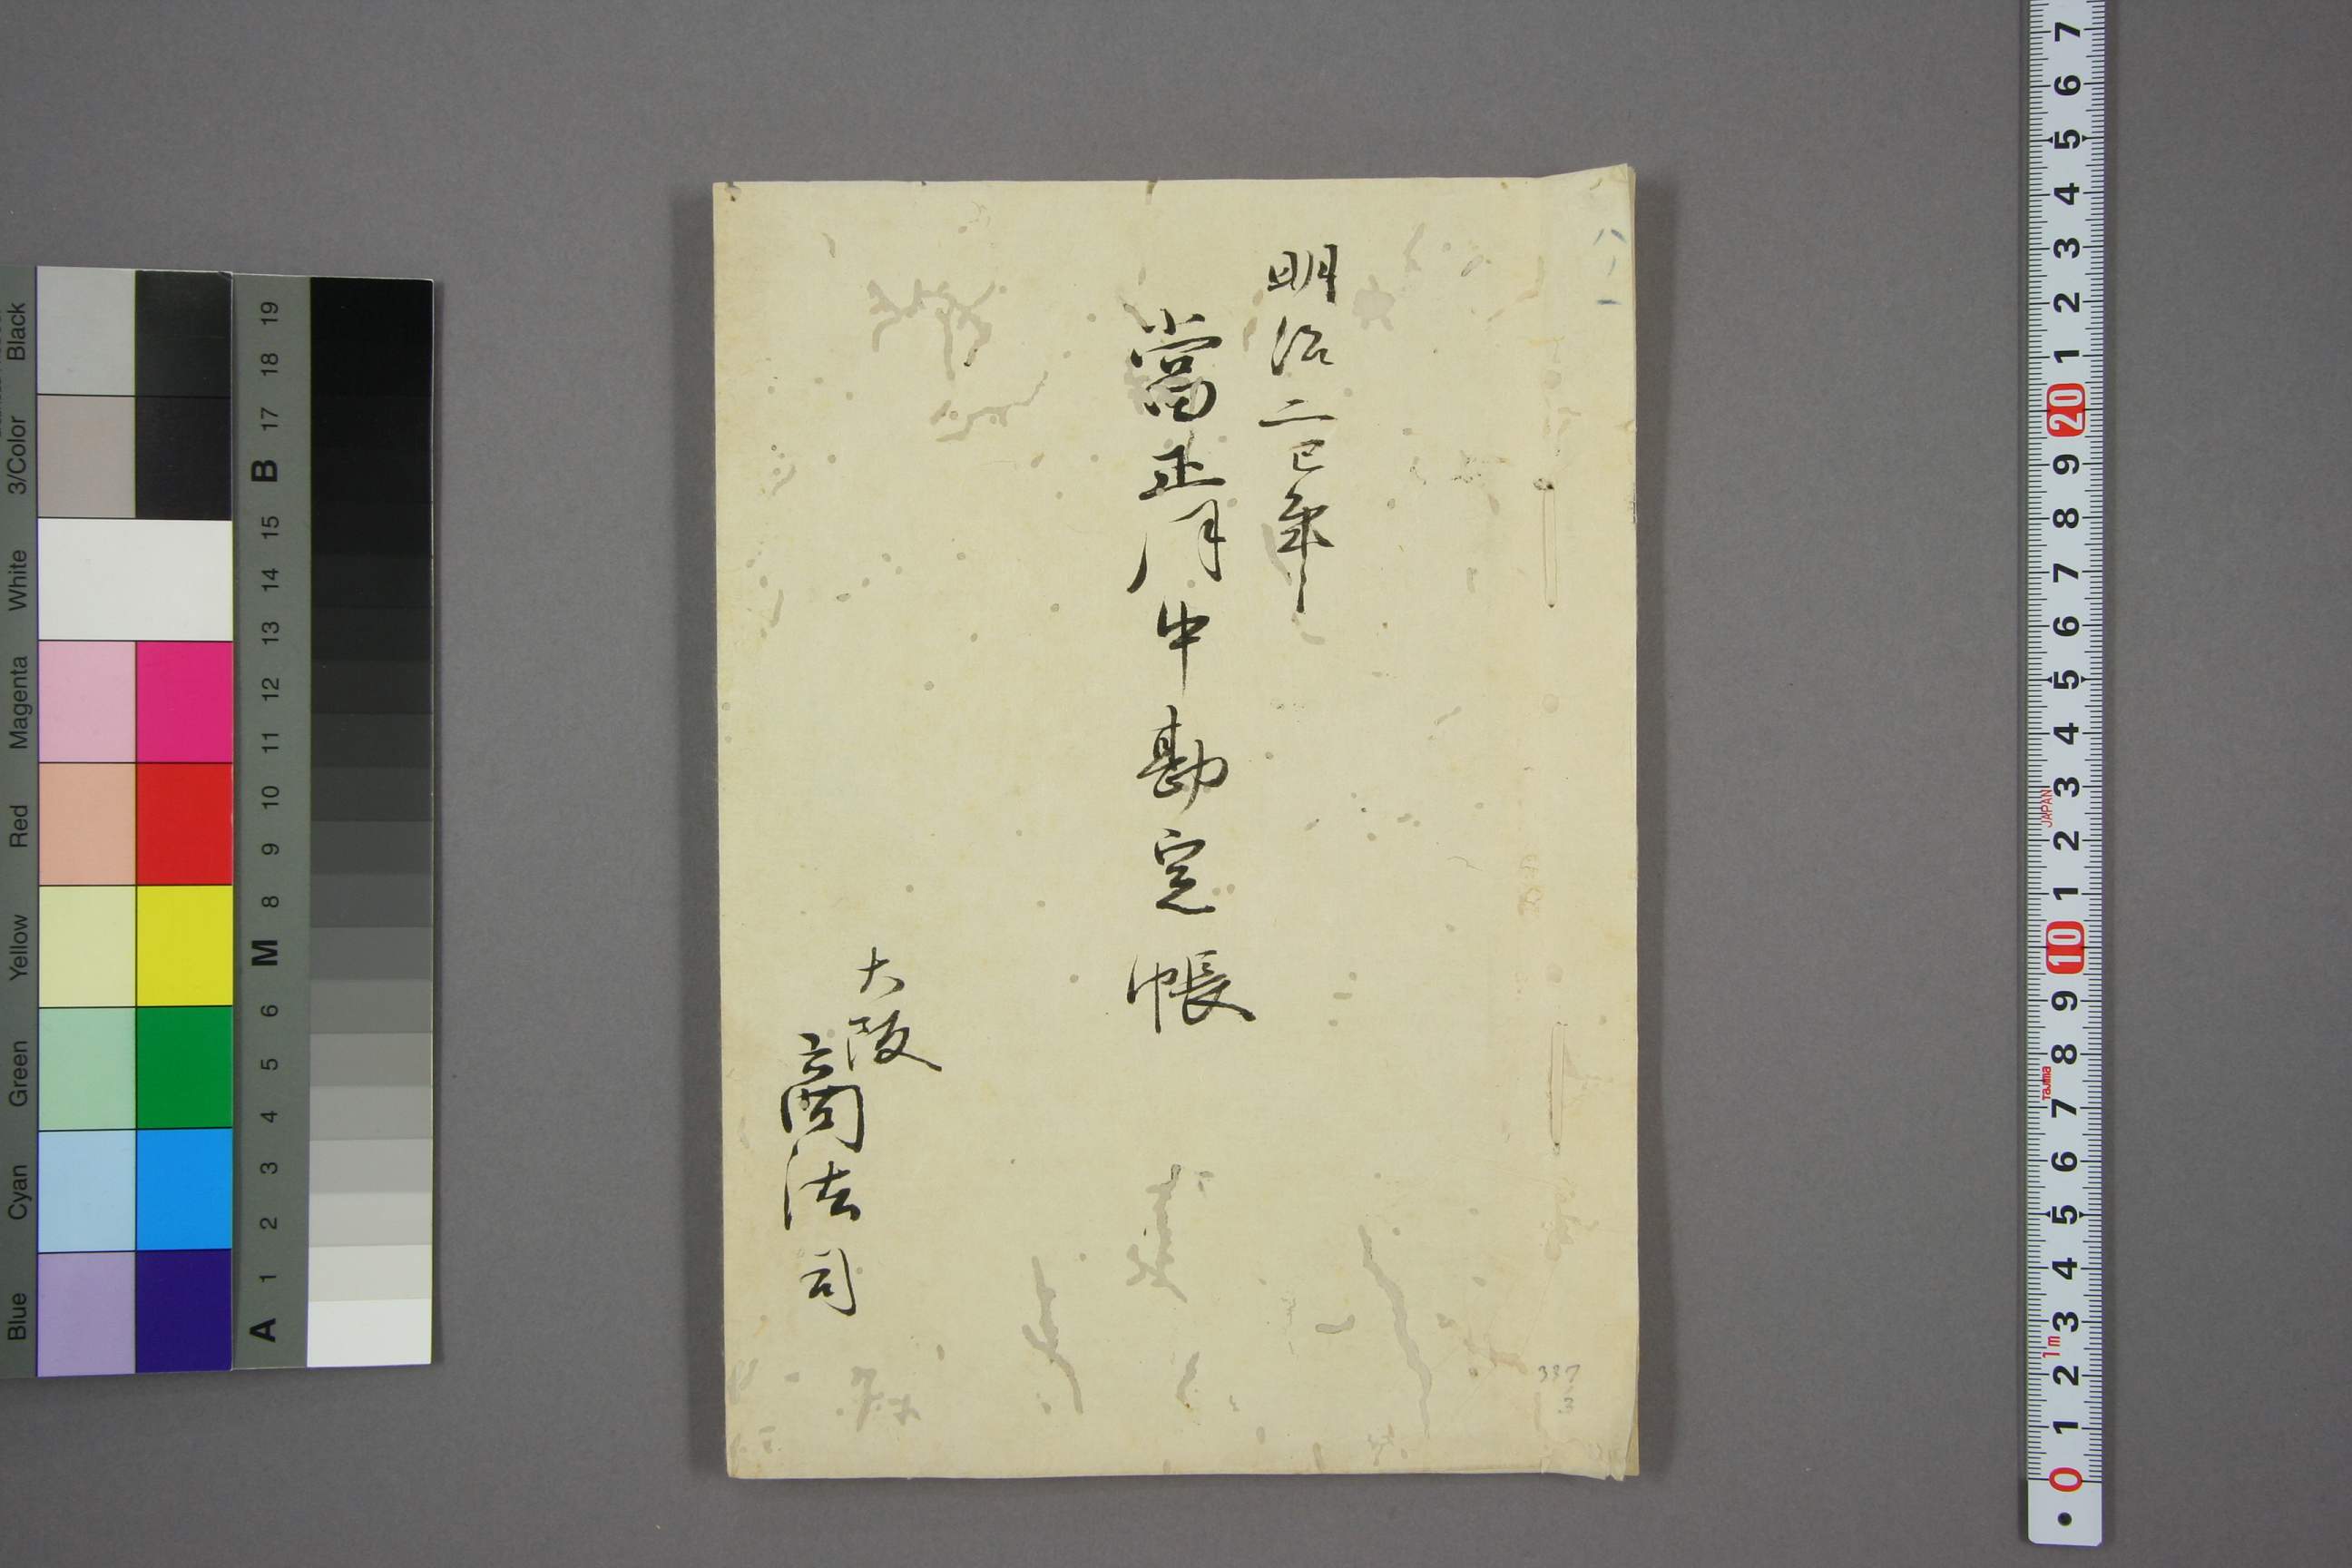 明治二巳年
當正月中勘定帳
大阪
商法司
337
3
Blue Cyan Green Yellow Red Magenta White 3/Color Black
A 1 2 3 4 5 6 M 8 9 10 11 12 13 14 15 B 17 18 19
0 1 2 3 4 5 6 7 8 9 10 1 2 3 4 5 6 7 8 9 20 1 2 3 4 5 6 7
1m Tajima JAPAN